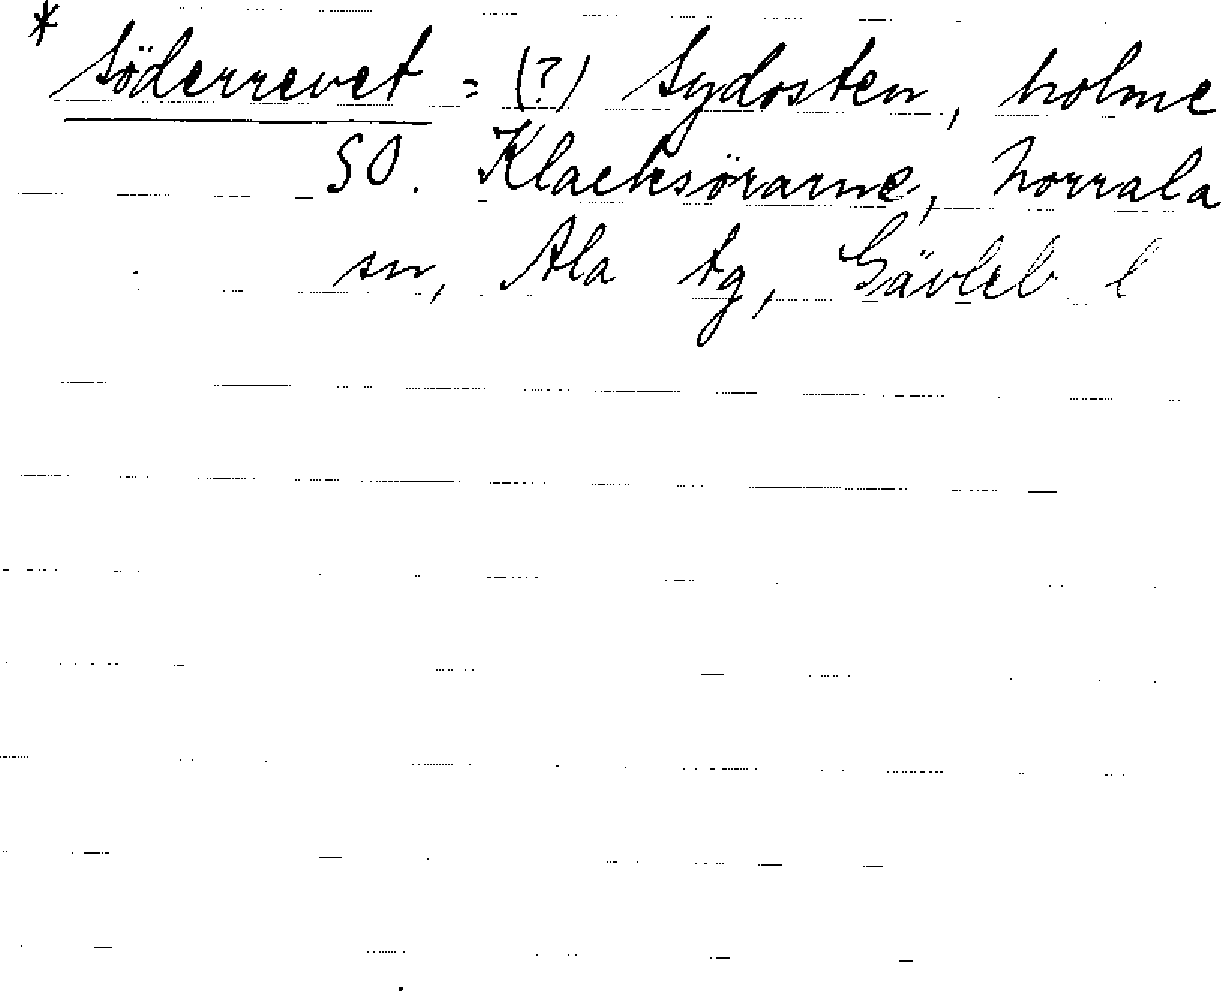 * Söderrevet = (?) Sydosten, holme
SO. Klacksörarne, Norrala
sn, Ala tg, Gävleb l